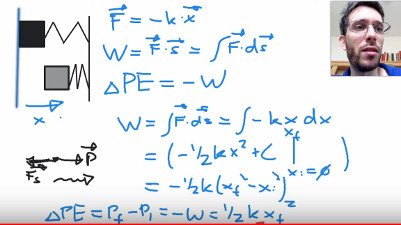 F⃗ = -k·x⃗
W = F⃗·s⃗ = ∫F⃗·ds⃗
ΔPE = -W
W = ∫F⃗·ds⃗ = ∫-kx dx
x
= (-½kx² + C |xf xi=0)
P⃗
F⃗s
= -½k(xf - xi)²
ΔPE = Pf - Pi = -W = ½kxf²